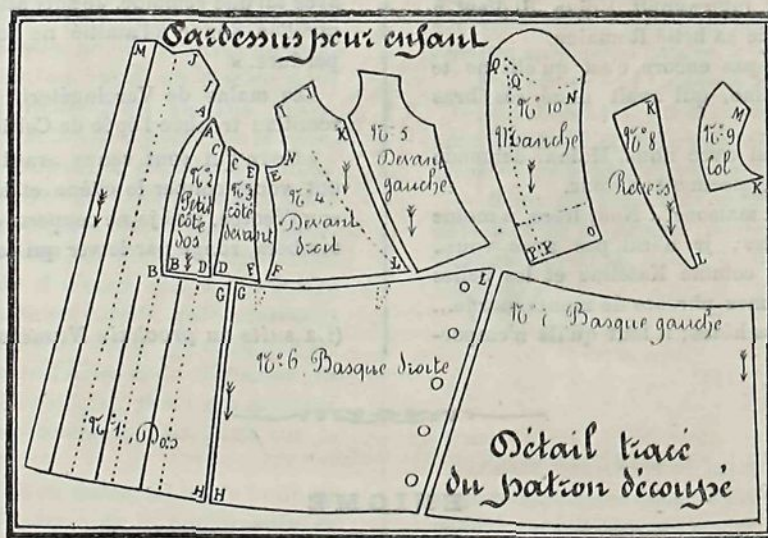 Pardessus pour enfant
M
J
I
A
A
C
N° 2
Petit
côté
dos
B
B
D
C
E
N° 3
côté
devant
D
F
J
K
N
E
N° 4
Devant
droit
F
L
N° 5
Devant
gauche
Q
Q
N
N° 10
Manche
P
P
O
K
N° 8
Revers
L
M
N° 9
Col
K
G
G
L
N° 6 Basque droite
N° 7 Basque gauche
N° 1, Dos
H
H
Détail tracé
du patron découpé